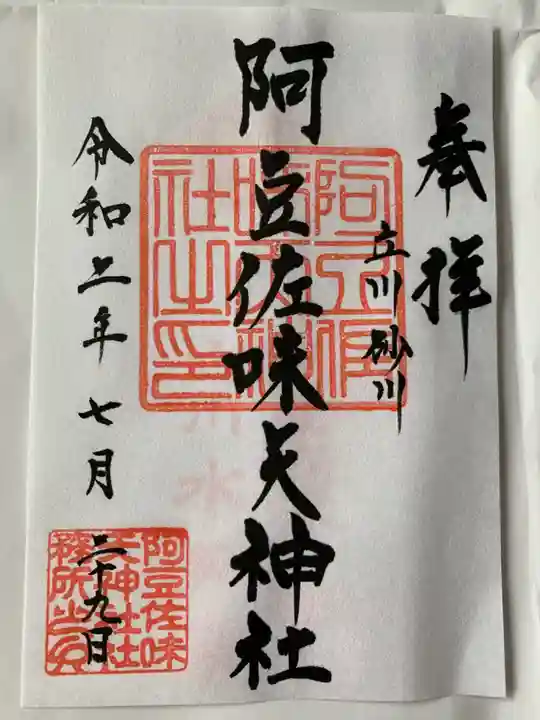 奉拝
立川砂川
阿豆佐味天神社
阿豆佐味天神社之印
令和二年七月
二十九日
阿豆佐味
天神社社
務所之印